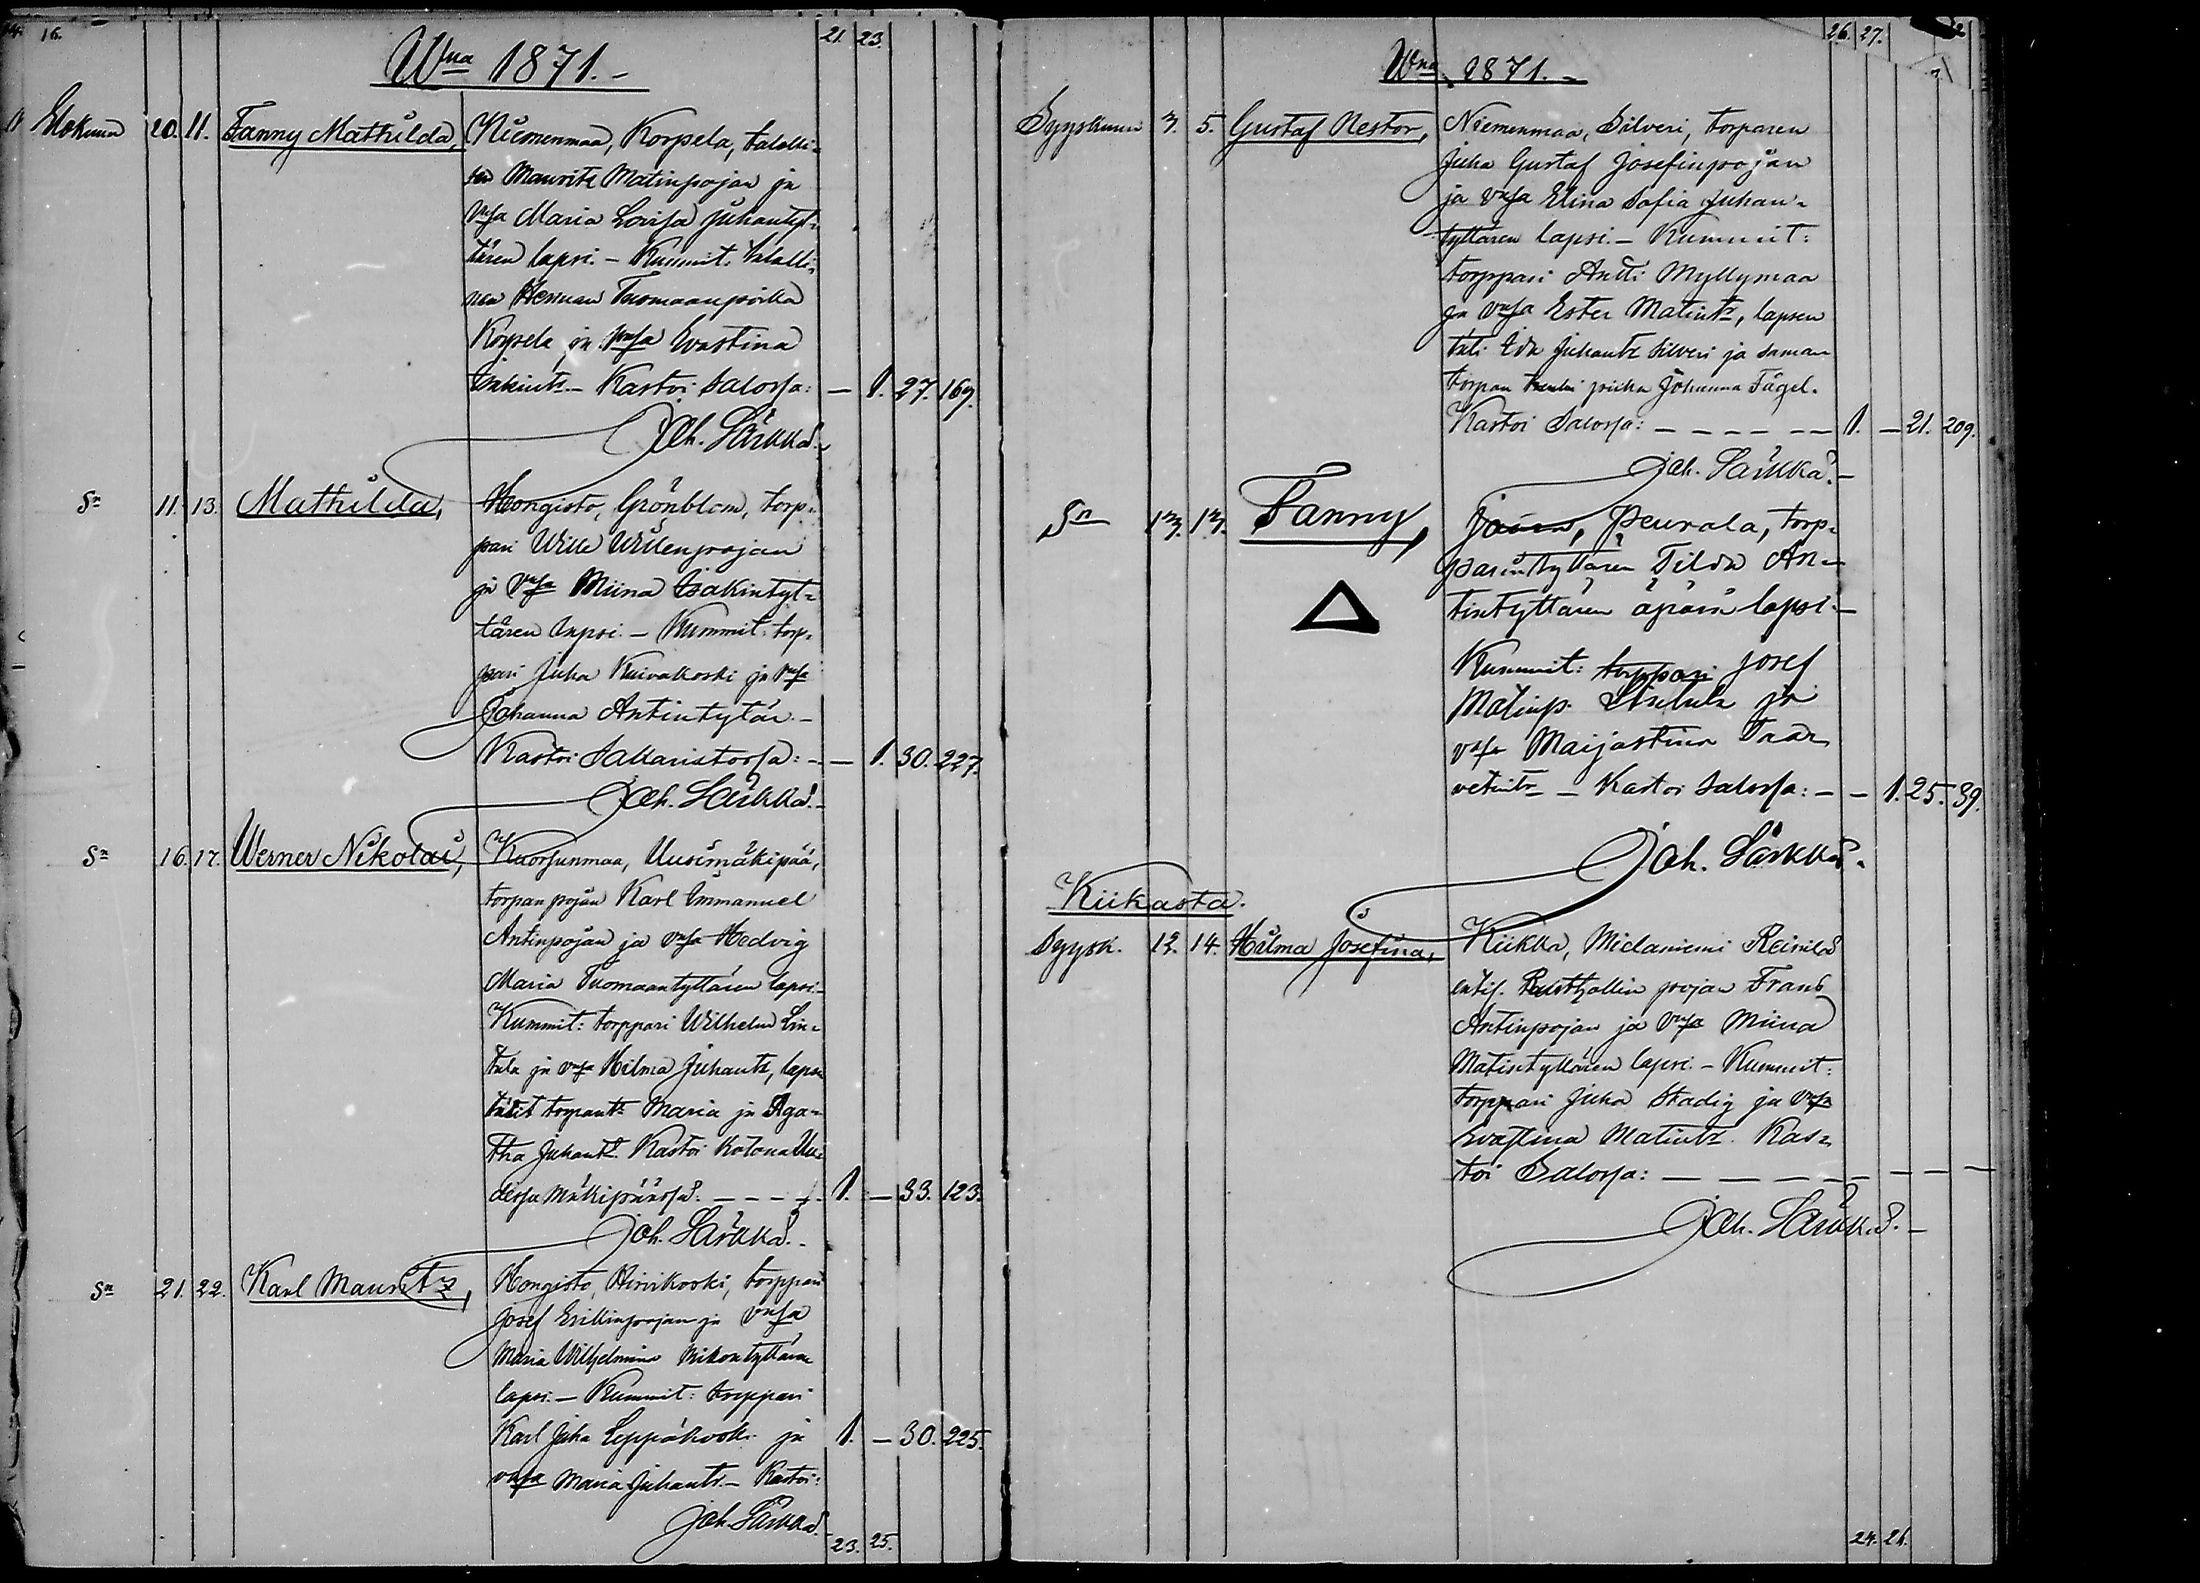 16. 21. 23.
Wna 1871.-
Elokuun 20. 11. Fanny Mathilda, Niemenmaa, Korpela, talolli-
sen Maurits Matinpojan ja
Vsa Maria Lovisa Juhantyt-
tären lapsi. - Kummit: talolli-
nen Herman Tuomaanpoika
Korpela ja Vsa Evastina
Isakintr. - Kastoi Salossa: - 1. 27. 169.
Joh. Särkkä.
Sn 11. 13. Mathilda, Hongisto, Grönblom, torp-
pari Wille Willenpojan
ja Vsa Miina Isakintyt-
tären lapsi. - Kummit: torp-
pari Juha Kuivakoski ja Vsa
Johanna Antintytär. -
Kastoi Sallaristossa: - - 1. 30. 227.
Joh. Särkkä.-
Sn 16. 17. Werner Nikolai, Kuorsunmaa, Uusimäkipää,
torpanpojan Karl Immanuel
Antinpojan ja Vsa Hedvig
Maria Tuomaantyttären lapsi.
Kummit: torppari Wilhelm Lin-
tula ja Vsa Hilma Juhantr, lapsen
tädit torpantr Maria ja Aga-
tha Juhantr. Kastoi kotona Uu-
dessa Mäkipäässä. - - - 1. - 33. 123.
Joh. Särkkä.-
Sn 21. 22. Karl Mauritz, Hongisto, Hirvikoski, torppari
Josef Erikinpojan ja Vsa
Maria Wilhelmina Mikontyttären
lapsi. - Kummit: torppari
Karl Juha Leppäkoski ja 1. - 30. 225.
Vsa Maria Juhantr. - Kastoi:
Joh. Särkkä.
23. 25.
26. 27.
Wna 1871.-
Syyskuun 3. 5. Gustaf Nestor, Niemenmaa, Silveri, torparen
Juha Gustaf Josefinpojan
ja Vsa Elina Sofia Juhan-
tyttären lapsi. - Kummit:
torppari Antti Myllymaa
ja Vsa Ester Matintr, lapsen
täti Ida Juhantr Silveri ja saman
torpan piika Johanna Fågel.
Kastoi Salossa: - - - - - 1. - 21. 209.
Joh. Särkkä.-
Sn 13. 17. Fanny, Peurala, torp-
parintyttären Tilda An-
tintyttären äpärä lapsi. -
Kummit: torppari Josef
Matinp. ja
Vsa Maijastina Taa-
vetintr - Kastoi Salossa: - - 1. 25. 39.
Joh. Särkkä.
Kiikasta.
Syysk. 12. 14. Hilma Josefina, Kiikka, Mielaniemi Reinilä
entis. Rusthollin pojan Frans
Antinpojan ja Vsa Miina
Matintyttären lapsi. - Kummit:
torppari Juha Stadig ja Vsa
Evastina Matintr. Kas-
toi Salossa: - - - - - - - -
Joh. Särkkä.-
24. 26.